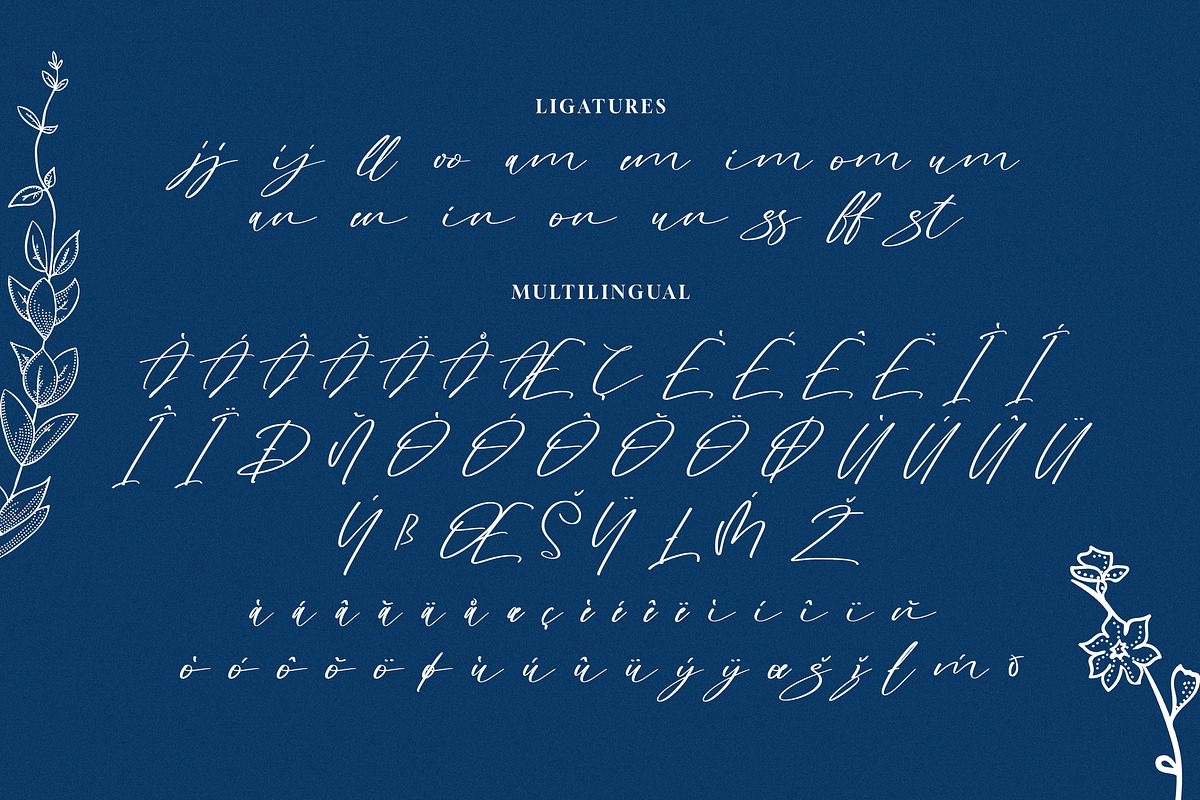 LIGATURES
jj ij ll oo am em im om um
an en in on un ss ff st
MULTILINGUAL
À Á Â Ã Ä Å Æ Ç È É Ê Ë Ì Í
Î Ï Ð Ñ Ò Ó Ô Õ Ö Ø Ù Ú Û Ü
Ý ß Œ Š Ÿ Ł Ḿ Ž
à á â ã ä å æ ç è é ê ë ì í î ï ñ
ò ó ô õ ö ø ù ú û ü ý ÿ œ š ž ł ḿ ð